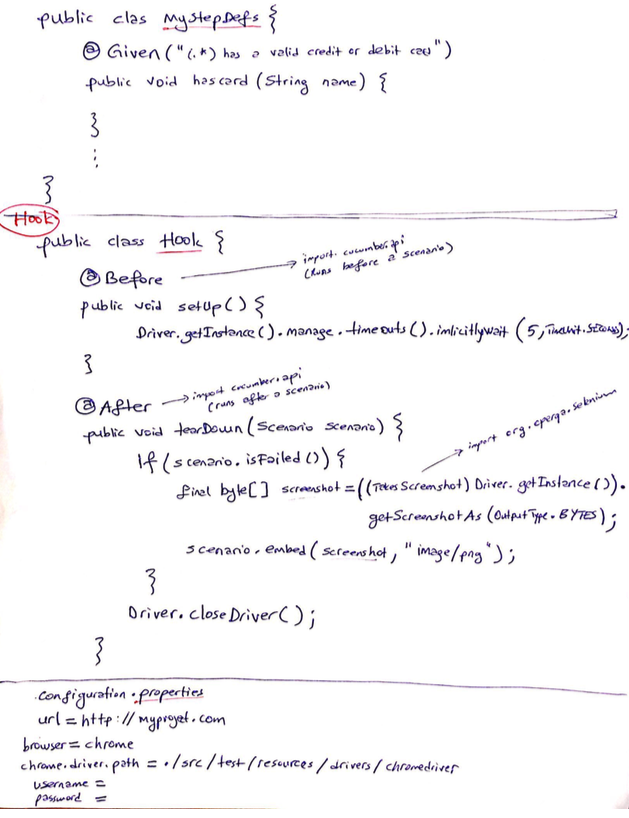 public clas MyStepDefs {
@Given("(.*) has a valid credit or debit card")
public void hascard (String name) {
}
⋮
}
Hook
public class Hook {
@Before → import cucumber.api
(runs before a scenario)
public void setUp() {
Driver.getInstance().manage.timeouts().imlicitlywait (5, TimeUnit.SECONDS);
}
@After → import cucumber.api
(runs after a scenario)
public void tearDown (Scenario scenario) {
→ import org.openqa.selenium
If (scenario.isFailed()) {
final byte[] screenshot = ((TakesScreenshot) Driver.getInstance()).
getScreenshotAs (OutputType.BYTES);
scenario.embed (screenshot, "image/png");
}
Driver.closeDriver();
}
.configuration.properties
url = http://myprojet.com
browser = chrome
chrome.driver.path = ./src/test/resources/drivers/chromedriver
username =
password =